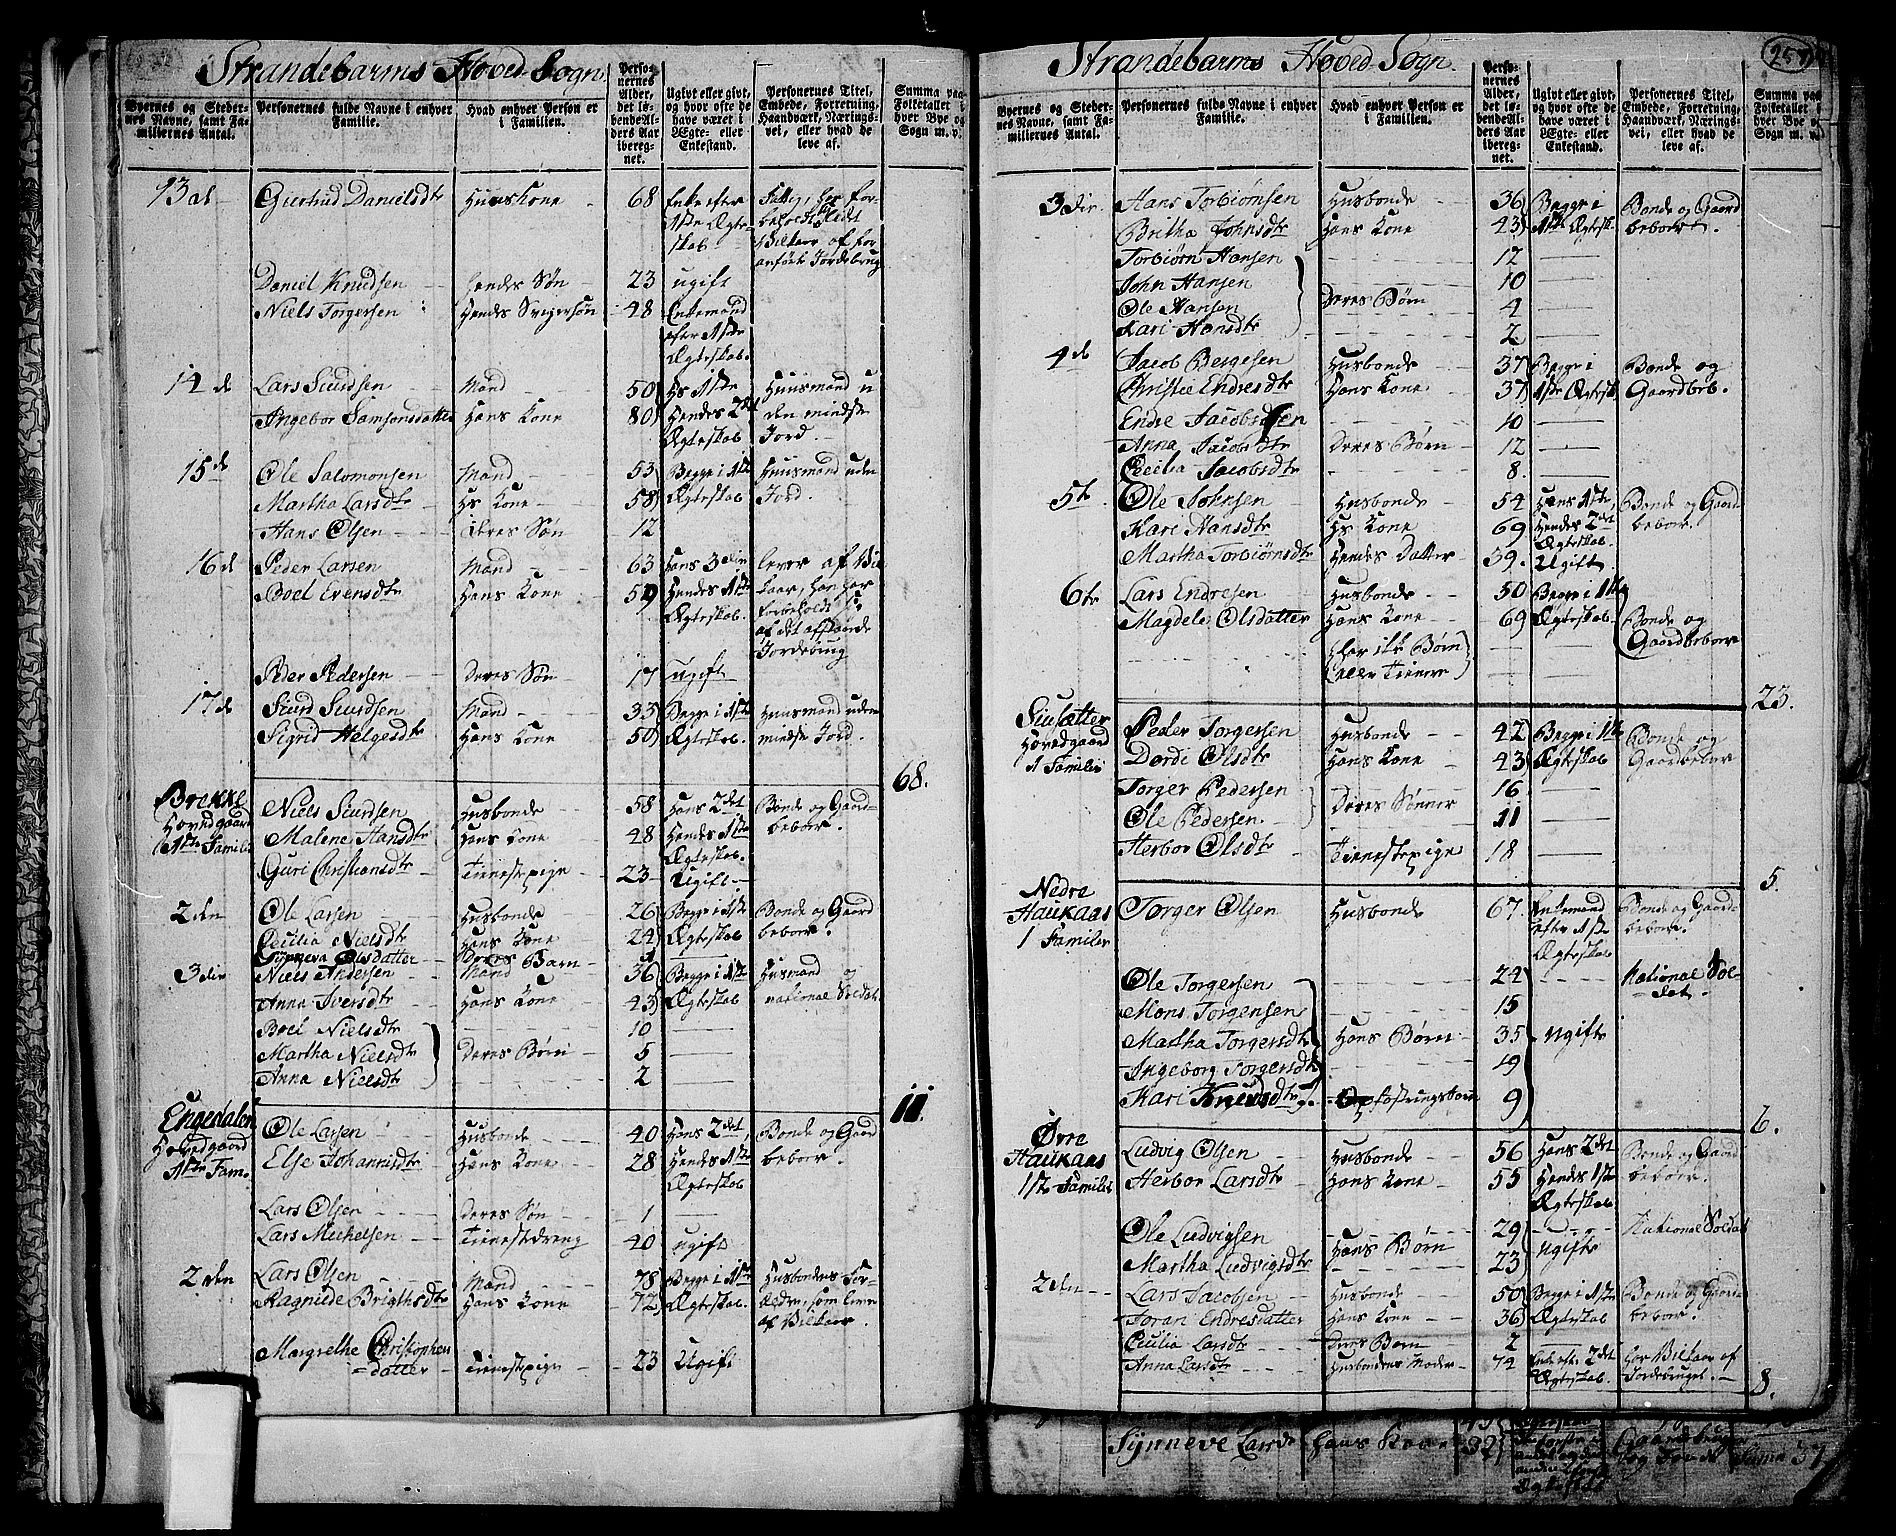 Strandebarms Hoved Sogn.
Byernes og Steder-
nes Navne, samt Fa-
miliernes Antal.
Personernes fulde Navne i enhver
Familie.
Hvad enhver Person er
i Familien.
Perso-
nernes
Alder,
det lø-
bende Al-
ders Aar
iberegnet.
Ugivt eller givt,
og hvor ofte de
have været i
Ægte- eller
Enkestand.
Personernes Titel,
Embede, Forretning,
Haandværk, Nærings-
vei, eller hvad de
leve af.
Summa paa
Folketallet i
hver Bye og
Sogn m. v.
13 de Giertrud Danielsdtr Huuskone 68 Enke efter
1ste Ægte-
skab
Daniel Knudsen hendes Søn 23 ugift
Niels Torgersen Hendes Svigersøn 48 Enkemand
efter 1ste
Ægteskab.
14 de Lars Siurdsen Mand 50 Hs 1ste Huusmand u
Ingebor Samsonsdatter Hans Kone 80 Hendes 2det den mindste
Ægteskab Jord.
15 de Ole Salomonsen Mand 53 Begge i 1ste Huusmand uden
Martha Larsdtr Hs Kone 58 Ægteskab Jord.
Hans Olsen deres Søn 12
16 de Peder Larsen Mand 63 Hans 3die lever af Vil
Boel Evensdtr Hans Kone 59 Hendes 1ste kaar, han har
Ægteskab. forbeholdt sig
af det afstaaede
Jordebrug
Peder Pedersen Deres Søn 17 ugift
17 de Siurd Siurdsen Mand 35 Begge i 1ste Huusmand uden
Sigrid Helgesdtr Hans Kone 50 Ægteskab. mindste Jord.
68.
Brekke
Hovedgaard
1ste Familie
Niels Siurdsen Husbonde 58 Hans 2det Bonde og Gaard-
Malene Hansdtr Hans Kone 48 Hendes 1ste beboer.
Ægteskab.
Guri Christiansdtr Tienestepige 23 Ugift
2 den Ole Larsen Husbonde 26 Begge i 1ste Bonde og Gaard
Cecilia Nielsdtr Hans Kone 24 Ægteskab beboer.
Synneva Olsdatter Deres Barn 1
3 die Niels Andersen Mand 36 Begge i 1ste Husmand og
Anna Iversdtr Hans Kone 43 Ægteskab national Soldat
Boel Nielsdtr 10
Martha Nielsdtr Deres Børn 5
Anna Nielsdtr 2
11.
Engedalen
Hovedgaard
1ste Fam.
Ole Larsen Husbonde 40 Hans 2det, Bonde og Gaard
Else Johannisdtr Hans Kone 28 Hendes 1ste beboer.
Ægteskab
Lars Olsen Deres Søn 1
Lars Michelsen Tienestedreng 40 ugift
2 den Lars Olsen Mand 78 Begge i 1ste Husbondens For-
Ragnilde Brigthsdtr Hans Kone 72 Ægteskab. ældre, som leve
af Vilkaar.
Margrethe Christophers
datter Tienestepige 23 Ugift
257
Strandebarms Hoved Sogn.
Byernes og Steder-
nes Navne, samt Fa-
miliernes Antal.
Personernes fulde Navne i enhver
Familie.
Hvad enhver Person er
i Familien.
Perso-
nernes
Alder,
det lø-
bende Al-
ders Aar
iberegnet.
Ugivt eller givt,
og hvor ofte de
have været i
Ægte- eller
Enkestand.
Personernes Titel,
Embede, Forretning,
Haandværk, Nærings-
vei, eller hvad de
leve af.
Summa paa
Folketallet i
hver Bye og
Sogn m. v.
3 die Hans Torbiørnsen Husbonde 36 Begge i Bonde og Gaard
Britha Johnsdtr Hans Kone 43 1ste Ægtesk. beboer.
Torbiørn Hansen 12
John Hansen 10
Ole Hansen Deres Børn 4
Kari Hansdtr 2
4 de Jacob Bergesen Husbonde 37 Begge i Bonde og
Christie Endresdtr Hans Kone 37 1ste Ægtesk. Gaardbeb.
Endre Jacobsen 10
Anna Jacobsdtr Deres Børn 12
Cecilia Jacobsdtr 8.
5te Ole Johnsen Husbonde 54 Hans 1ste, Bonde og Gaard
Kari Hansdtr Hs Kone 69 Hendes 2det beboer.
Ægteskab.
Martha Torbiørnsdtr Hendes Datter 39. Ugift.
6te Lars Endresen Husbonde 50 Begge i 1ste
Magdele Olsdatter Hans Kone 69 Ægteskab. Bonde og
(har ikke Børn Gaardbeboer
eller Tienere)
23.
Siusætter
Hovedgaard
1 Familie
Peder Torgersen Husbonde 42 Begge i 1ste Bonde og
Dordi Olsdtr Hans Kone 43 Ægteskab. Gaardbeboer
Torger Pedersen 16
Ole Pedersen Deres Sønner 11
Herbor Olsdtr Tienestepige 18
5.
Nedre
Haukaas
1 Familie
Torger Olsen Husbonde 67. Enkemand Bonde og Gaard-
efter 1ste beboer.
Ægteskab
Ole Torgersen 24 National Sol-
dat.
Mons Torgersen 15
Martha Torgersdtr Hans Børn 35 ugifte
Ingeborg Torgersdtr 19
Kari Knudsdtr Opfostringsbarn 9
6.
Øvre
Haukaas
1ste Familie
Ludvig Olsen Husbonde 56 Hans 2det Bonde og Gaard
Herbor Larsdtr Hans Kone 55 Hendes 1ste beboer.
Ægteskab
Ole Ludvigsen 29 National Soldat
Martha Ludvigsdtr Hans Børn 23 ugifte
2 den Lars Jacobsen Husbonde 50 Begge i 1ste Bonde og Gaard-
Joran Endresdatter Hans Kone 36 Ægteskab beboer.
Cecilia Larsdtr Deres Barn 2
Anna Larsdtr Husbondens Moder 74 Enke eft. 2det har Vilkaar af
Ægteskab. Jordebruget.
8.
Synneve Larsd Hans Kone 32
Ægteskab